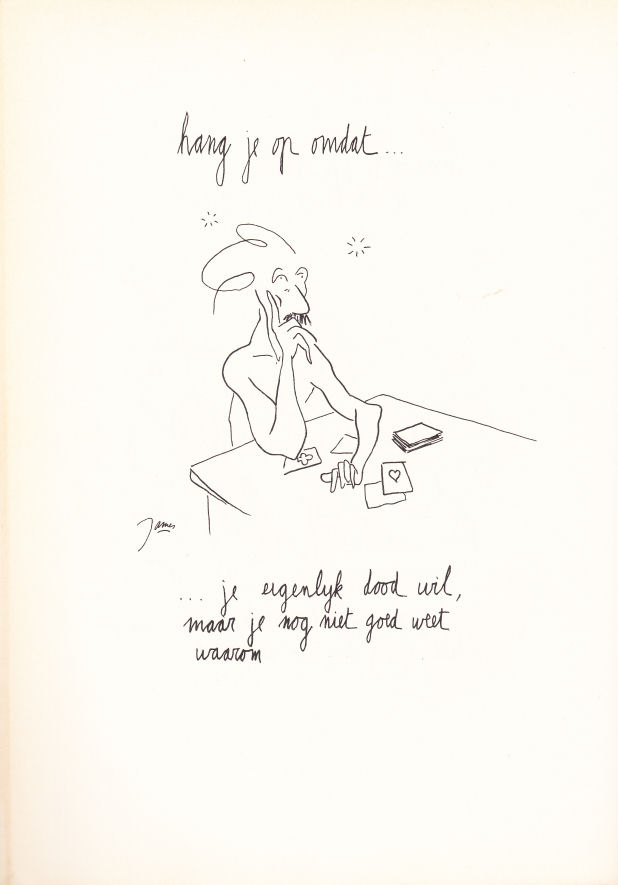 hang je op omdat...
James
... je eigenlyk dood wil,
maar je nog niet goed weet
waarom